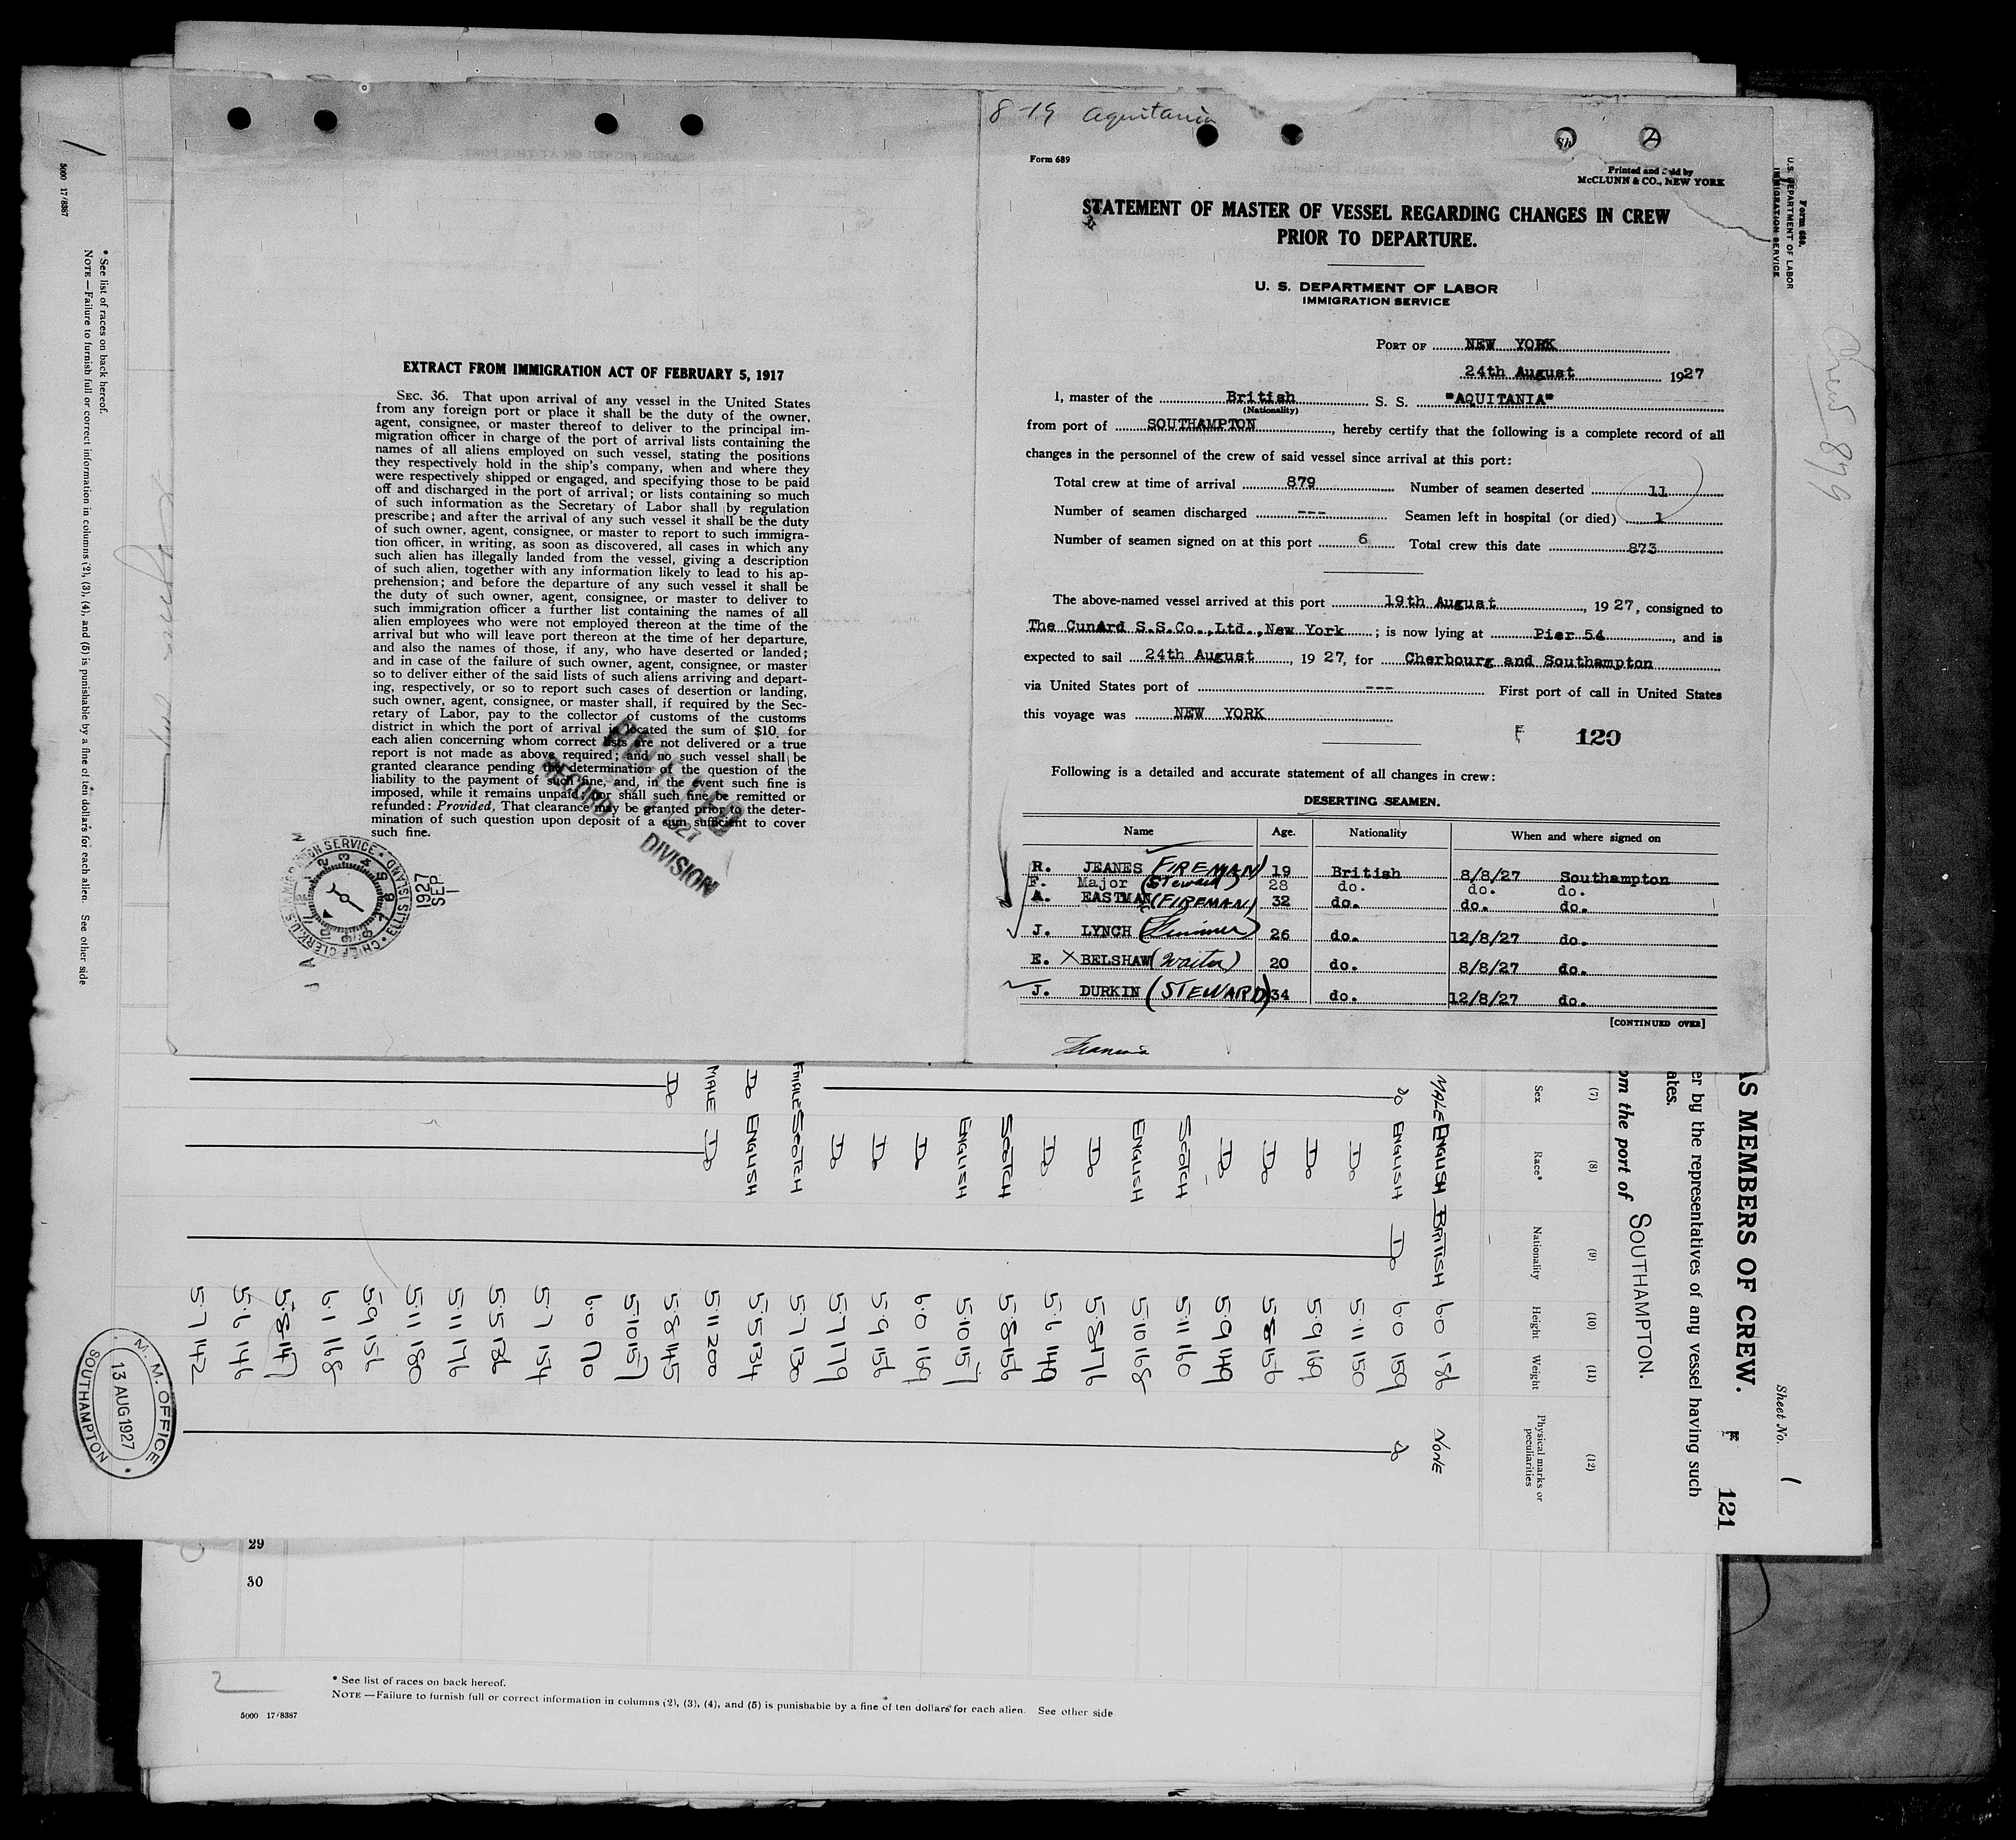 8-19 Aquitania
Form 689
Printed and Sold by
McCLUNN & CO., NEW YORK
STATEMENT OF MASTER OF VESSEL REGARDING CHANGES IN CREW
PRIOR TO DEPARTURE.
U. S. DEPARTMENT OF LABOR
IMMIGRATION SERVICE
PORT OF NEW YORK
24th August 1927
I, master of the British S. S. "AQUITANIA"
(Nationality)
from port of SOUTHAMPTON, hereby certify that the following is a complete record of all
changes in the personnel of the crew of said vessel since arrival at this port:
Total crew at time of arrival 879 Number of seamen deserted 11
Number of seamen discharged --- Seamen left in hospital (or died) 1
Number of seamen signed on at this port 6 Total crew this date 873
The above-named vessel arrived at this port 19th August, 1927, consigned to
The Cunard S.S.Co.,Ltd.,New York; is now lying at Pier 54, and is
expected to sail 24th August, 1927, for Cherbourg and Southampton
via United States port of --- First port of call in United States
this voyage was NEW YORK
120
Following is a detailed and accurate statement of all changes in crew:
DESERTING SEAMEN.
Name Age. Nationality When and where signed on
R. JEANES (FIREMAN) 19 British 8/8/27 Southampton
F. Major (Steward) 28 do. do. do.
A. EASTMAN (FIREMAN) 32 do. do. do.
J. LYNCH (Trimmer) 26 do. 12/8/27 do.
E. X BELSHAW (Waiter) 20 do. 8/8/27 do.
J. DURKIN (STEWARD) 34 do. 12/8/27 do.
[CONTINUED OVER]
EXTRACT FROM IMMIGRATION ACT OF FEBRUARY 5, 1917
SEC. 36. That upon arrival of any vessel in the United States
from any foreign port or place it shall be the duty of the owner,
agent, consignee, or master thereof to deliver to the principal im-
migration officer in charge of the port of arrival lists containing the
names of all aliens employed on such vessel, stating the positions
they respectively hold in the ship's company, when and where they
were respectively shipped or engaged, and specifying those to be paid
off and discharged in the port of arrival; or lists containing so much
of such information as the Secretary of Labor shall by regulation
prescribe; and after the arrival of any such vessel it shall be the duty
of such owner, agent, consignee, or master to report to such immigra-
tion officer, in writing, as soon as discovered, all cases in which any
such alien has illegally landed from the vessel, giving a description
of such alien, together with any information likely to lead to his ap-
prehension; and before the departure of any such vessel it shall be
the duty of such owner, agent, consignee, or master to deliver to
such immigration officer a further list containing the names of all
alien employees who were not employed thereon at the time of the
arrival but who will leave port thereon at the time of her departure,
and also the names of those, if any, who have deserted or landed;
and in case of the failure of such owner, agent, consignee, or master
so to deliver either of the said lists of such aliens arriving and depart-
ing, respectively, or so to report such cases of desertion or landing,
such owner, agent, consignee, or master shall, if required by the Sec-
retary of Labor, pay to the collector of customs of the customs
district in which the port of arrival is located the sum of $10 for
each alien concerning whom correct lists are not delivered or a true
report is not made as above required; and no such vessel shall be
granted clearance pending the determination of the question of the
liability to the payment of such fine, and, in the event such fine is
imposed, while it remains unpaid; nor shall such fine be remitted or
refunded: Provided, That clearance may be granted prior to the deter-
mination of such question upon deposit of a sum sufficient to cover
such fine.
RECORD
DIVISION
1927
SEP
1
CHIEF CLERK, U.S. IMMIGRATION SERVICE • ELLIS ISLAND
Form 689.
U.S. DEPARTMENT OF LABOR
IMMIGRATION SERVICE
Crew 879
Sheet No. 1
121
AS MEMBERS OF CREW.
er by the representatives of any vessel having such
ates.
om the port of SOUTHAMPTON.
(7) (8) (9) (10) (11) (12)
Sex Race* Nationality Height Weight Physical marks or peculiarities
MALE ENGLISH BRITISH 6 0 186 NONE
Do ENGLISH Do 6 0 159 Do
Do 5 11 150
Do 5 9 169
Do 5 8 156
Do 5 9 149
SCOTCH 5 11 160
ENGLISH 5 10 168
Do 5 8 176
Do 5 6 149
SCOTCH 5 8 156
ENGLISH 5 10 157
Do 6 0 169
Do 5 9 156
Do 5 7 179
FMALE SCOTCH 5 7 130
Do ENGLISH 5 5 134
MALE Do 5 11 200
Do 5 8 145
5 10 157
6 0 170
5 7 154
5 5 136
5 11 176
5 11 180
5 9 156
6 1 168
5 8 147
5 6 146
5 7 142
M. M. OFFICE
13 AUG 1927
SOUTHAMPTON
* See list of races on back hereof.
NOTE—Failure to furnish full or correct information in columns (2), (3), (4), and (5) is punishable by a fine of ten dollars for each alien. See other side
5000 17/8387
1
29
30
2
* See list of races on back hereof.
NOTE—Failure to furnish full or correct information in columns (2), (3), (4), and (5) is punishable by a fine of ten dollars for each alien. See other side
5000 17/8387